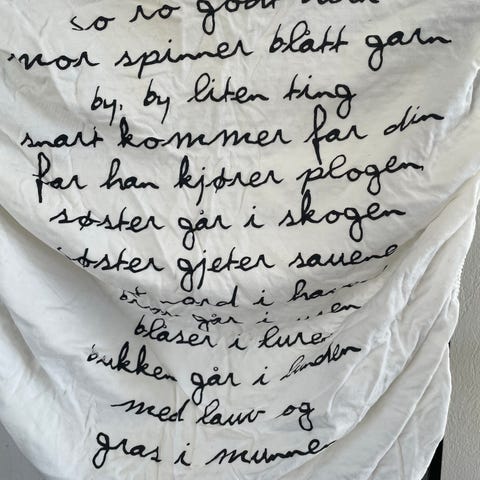 so ro godt
mor spinner blått garn
by, by liten ting
snart kommer far din
far han kjører plogen
søster går i skogen
søster gjeter sauene
nord i
går i
blåser i luren
bukken går i lunden
med lauv og
gras i munnen